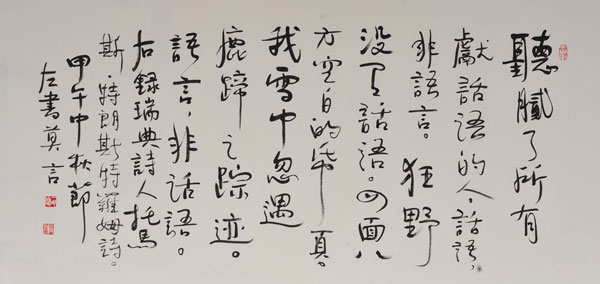 聽膩了所有
獻話語的人，話語，
非語言。狂野
没有話語。四面八
方空白的帋頁。
我雪中忽遇
鹿蹄之踪迹。
語言，非話語。
右録瑞典詩人托馬
斯·特朗斯特羅姆詩。
甲午中秋節
左書莫言